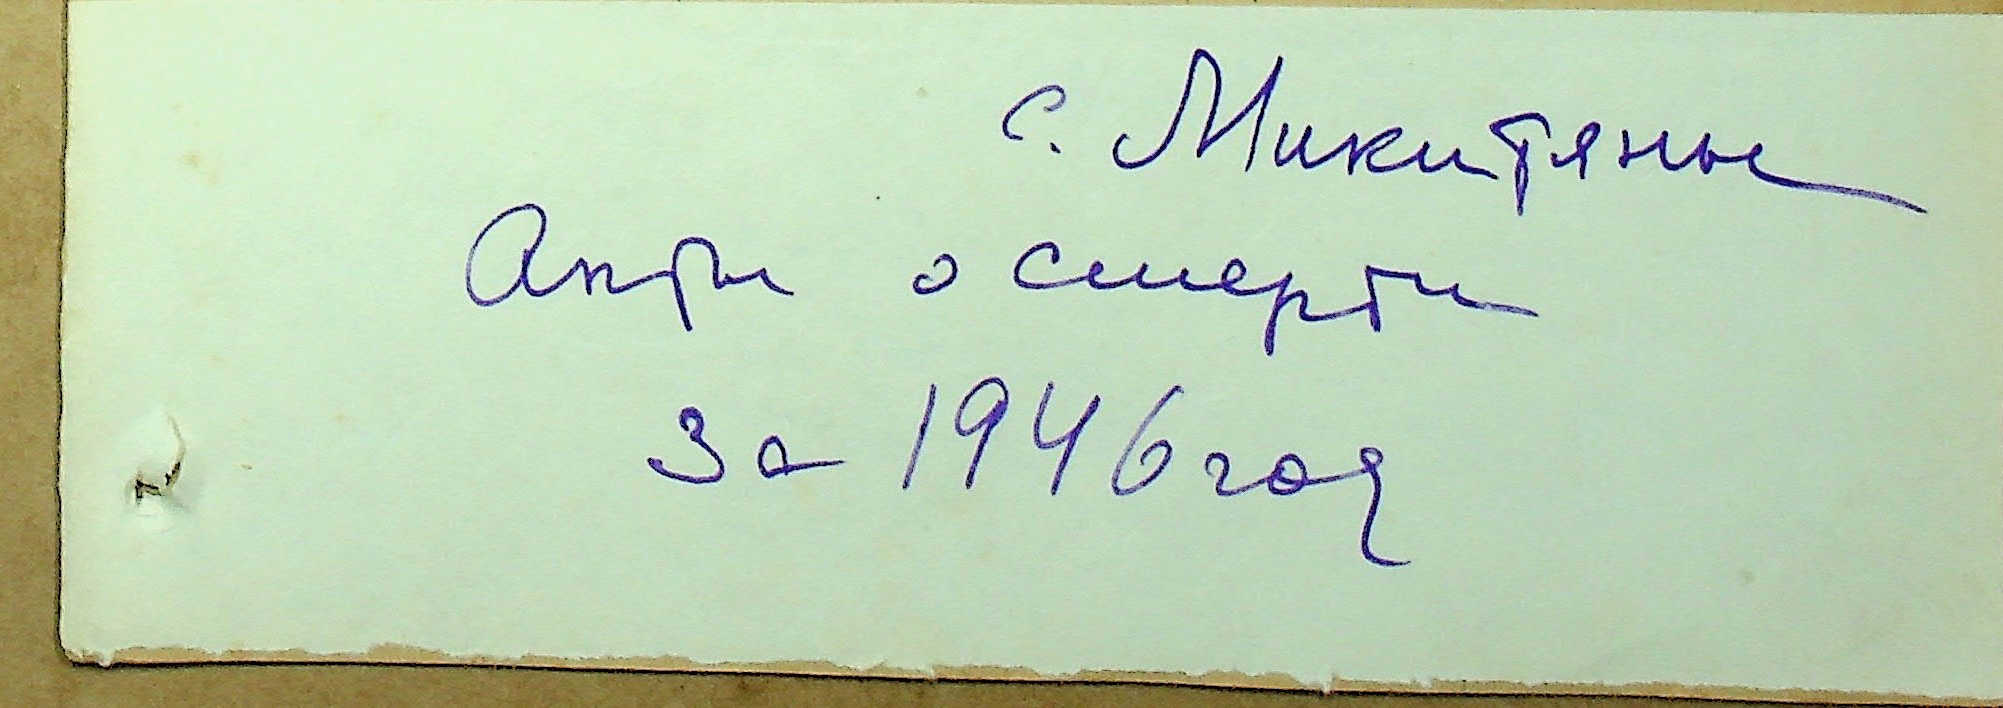 с. Микитяны
Акты о смерти
за 1946 год